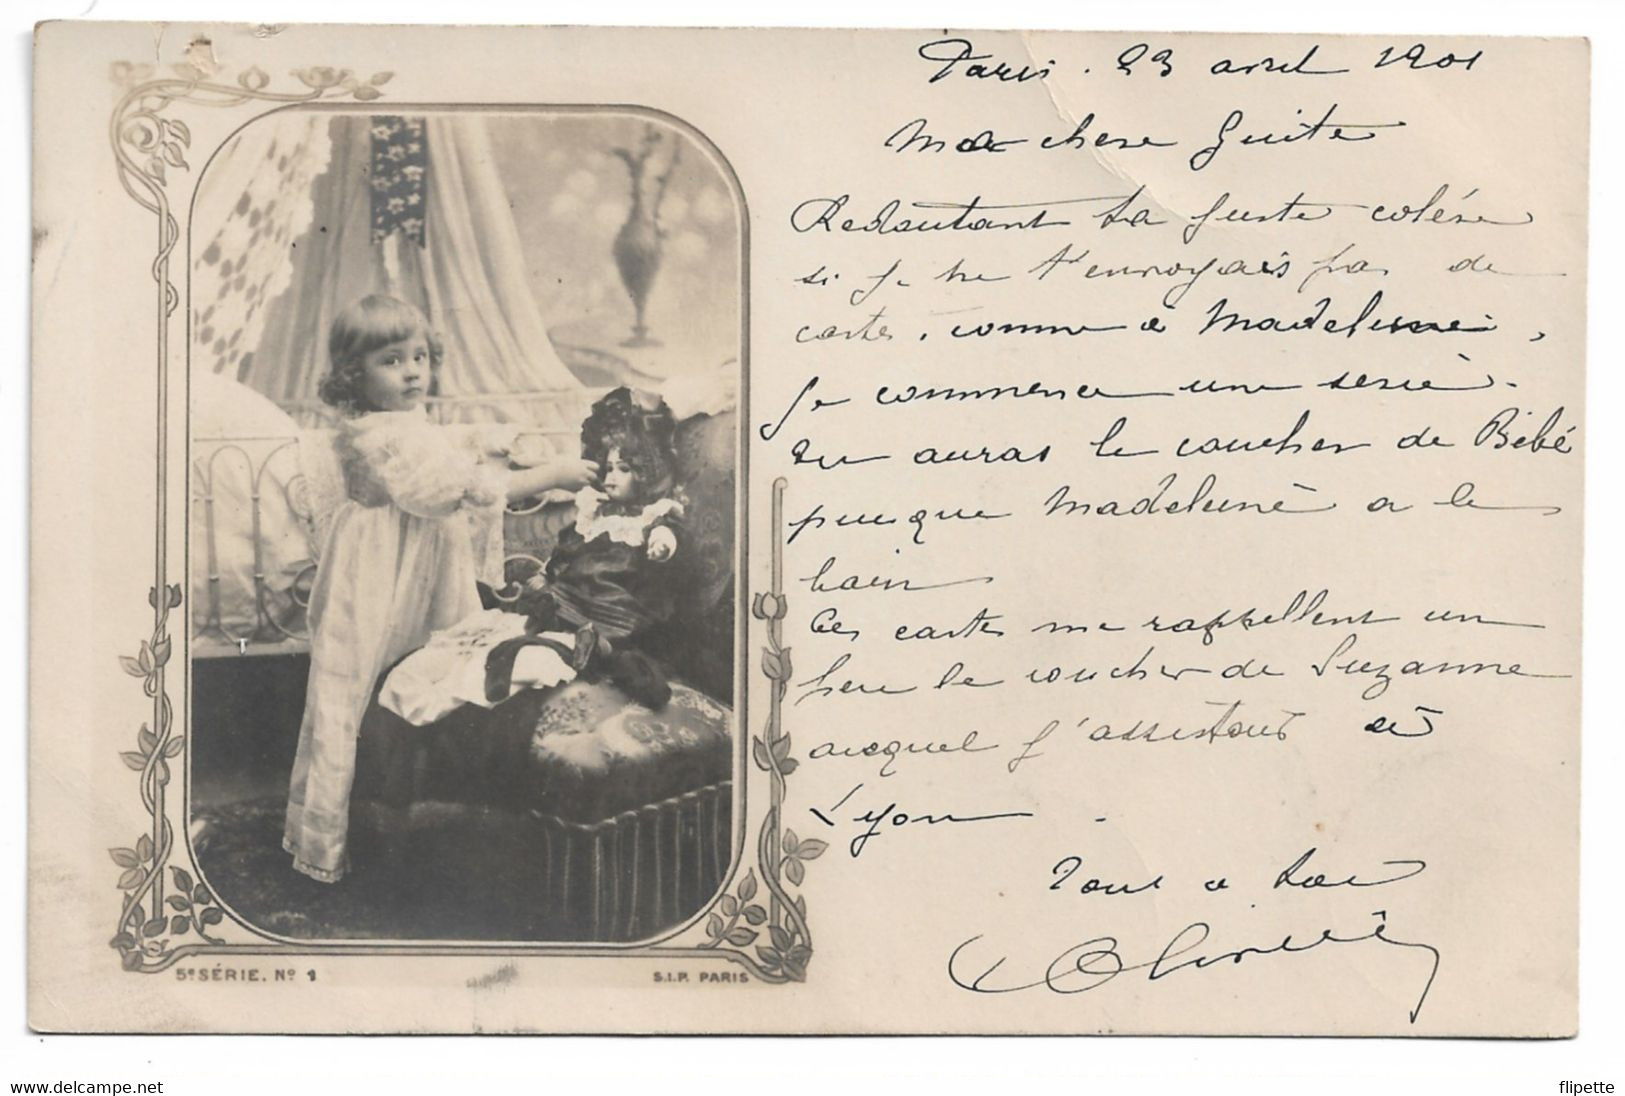 Paris. 23 avril 1901
Ma chere Guite
Redoutant ta juste colére
si je ne t'envoyais pas de
cartes, comme à Madeleine,
je commence une serie.
Tu auras le coucher de Bébé
puisque Madeleine a le
bain
Ces cartes me rappellent un
peu le coucher de Suzanne
auquel j'assistais à
Lyon.
Tout a toi
5e SÉRIE. No 1
S.I.P. PARIS
www.delcampe.net
flipette